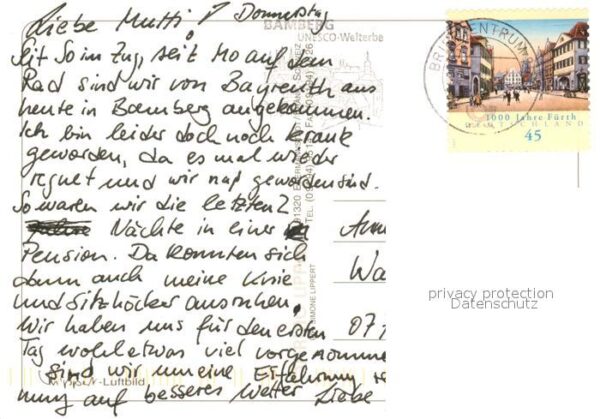 Liebe Mutti! Donnerstag
BAMBERG
UNESCO-Welterbe
Seit So im Zug, seit Mo auf dem
Rad sind wir von Bayreuth aus
heute in Bamberg angekommen.
Ich bin leider doch noch krank
geworden, da es mal wieder
regnet und wir naß geworden sind.
So waren wir die letzten 2
Nächte in einer
Pension. Da konnten sich
dann auch meine Knie
und Sitzhöcker ausruhen.
Wir haben uns für den ersten
Tag wohl etwas viel vorgenomme
sind wir um eine Erfahrung re
nung auf besseres Wetter Liebe
Luftbild
SIMONE LIPPERT
BRIEFZENTRUM
1000 Jahre Fürth
DEUTSCHLAND
45
Wa
07
privacy protection
Datenschutz